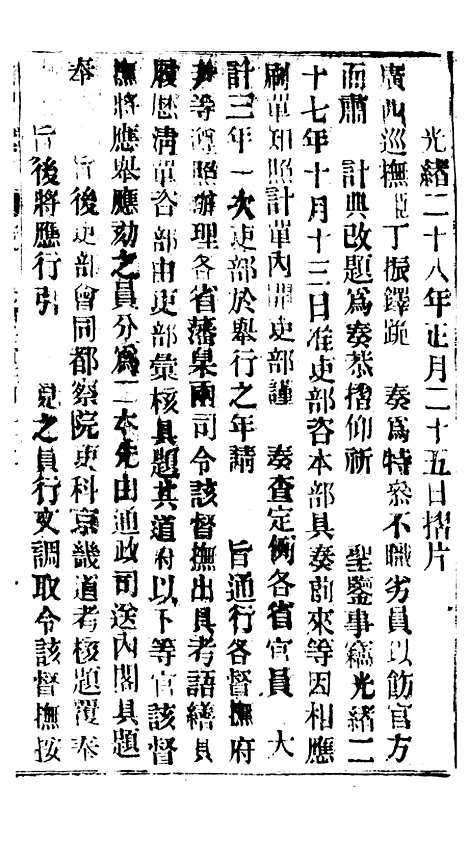 光緒二十八年正月二十五日摺片
廣西巡撫臣丁振鐸跪　奏爲特參不職劣員以飭官方
而肅　計典改題爲奏恭摺仰祈　聖鑒事竊光緒二
十七年十月十三日准吏部咨本部具奏前來等因相應
刷單知照計單內開吏部謹　奏查定例各省官員　大
計三年一次吏部於舉行之年請　旨通行各督撫府
尹等遵照辦理各省藩臬兩司令該督撫出具考語繕具
履歷清單咨部由吏部彙核具題其道府以下等官該督
撫將應舉應劾之員分爲二本先由通政司送內閣具題
奉　旨後吏部會同都察院吏科京畿道考核題覆奉
旨後將應行引　見之員行文調取令該督撫按